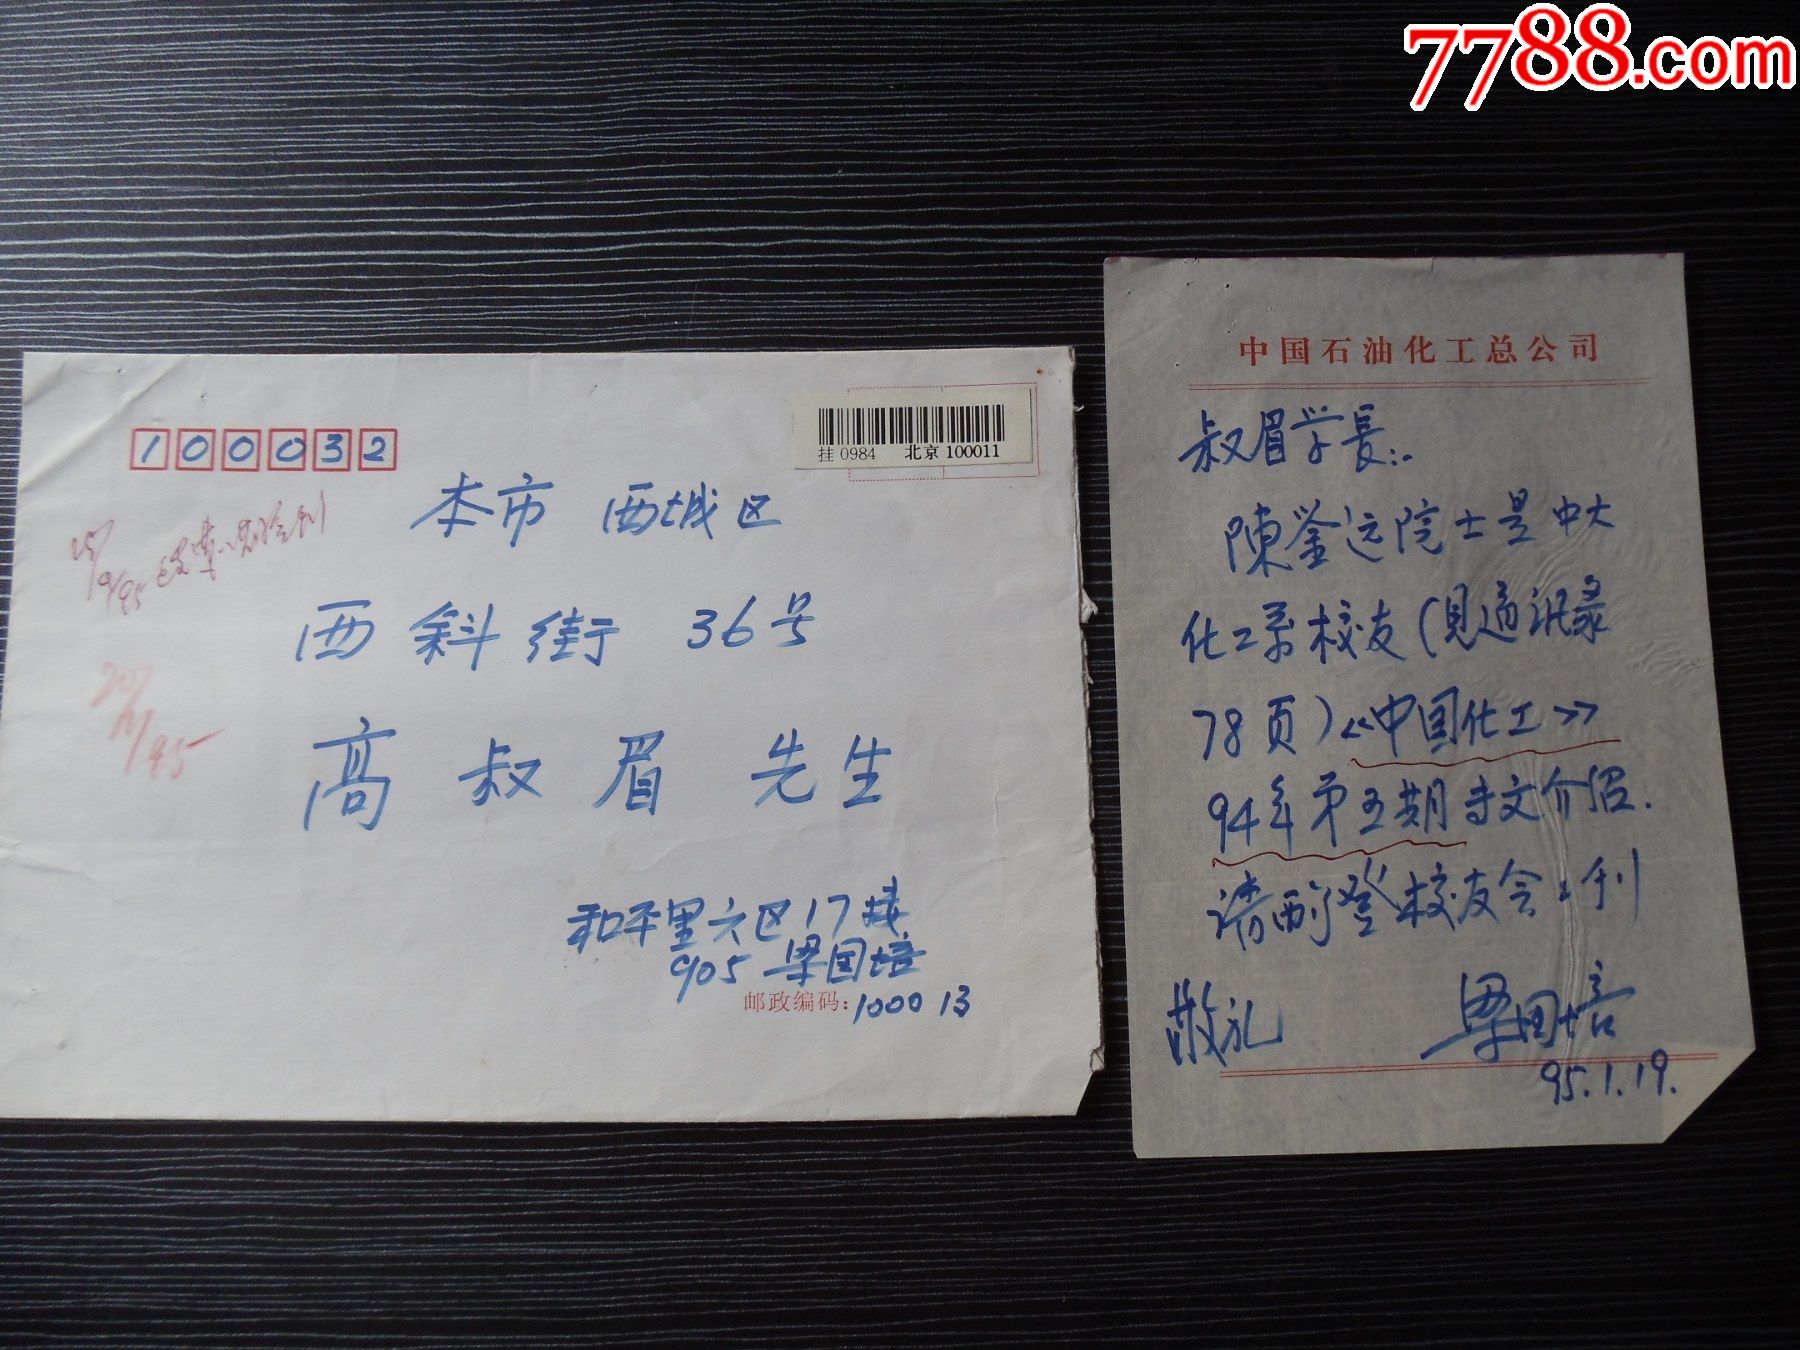 7788.com
100032
挂 0984 北京 100011
本市 西城区
西斜街 36号
高叔眉 先生
和平里六区17楼
905 梁国培
邮政编码：100013
25/9/95
20/11/95
中国石油化工总公司
叔眉学長：
陳鉴远院士是中大
化工系校友（見通讯录
78页）《中国化工》
94年第五期专文介绍.
请酌登校友会会刊
敬礼
梁国培
95.1.19.